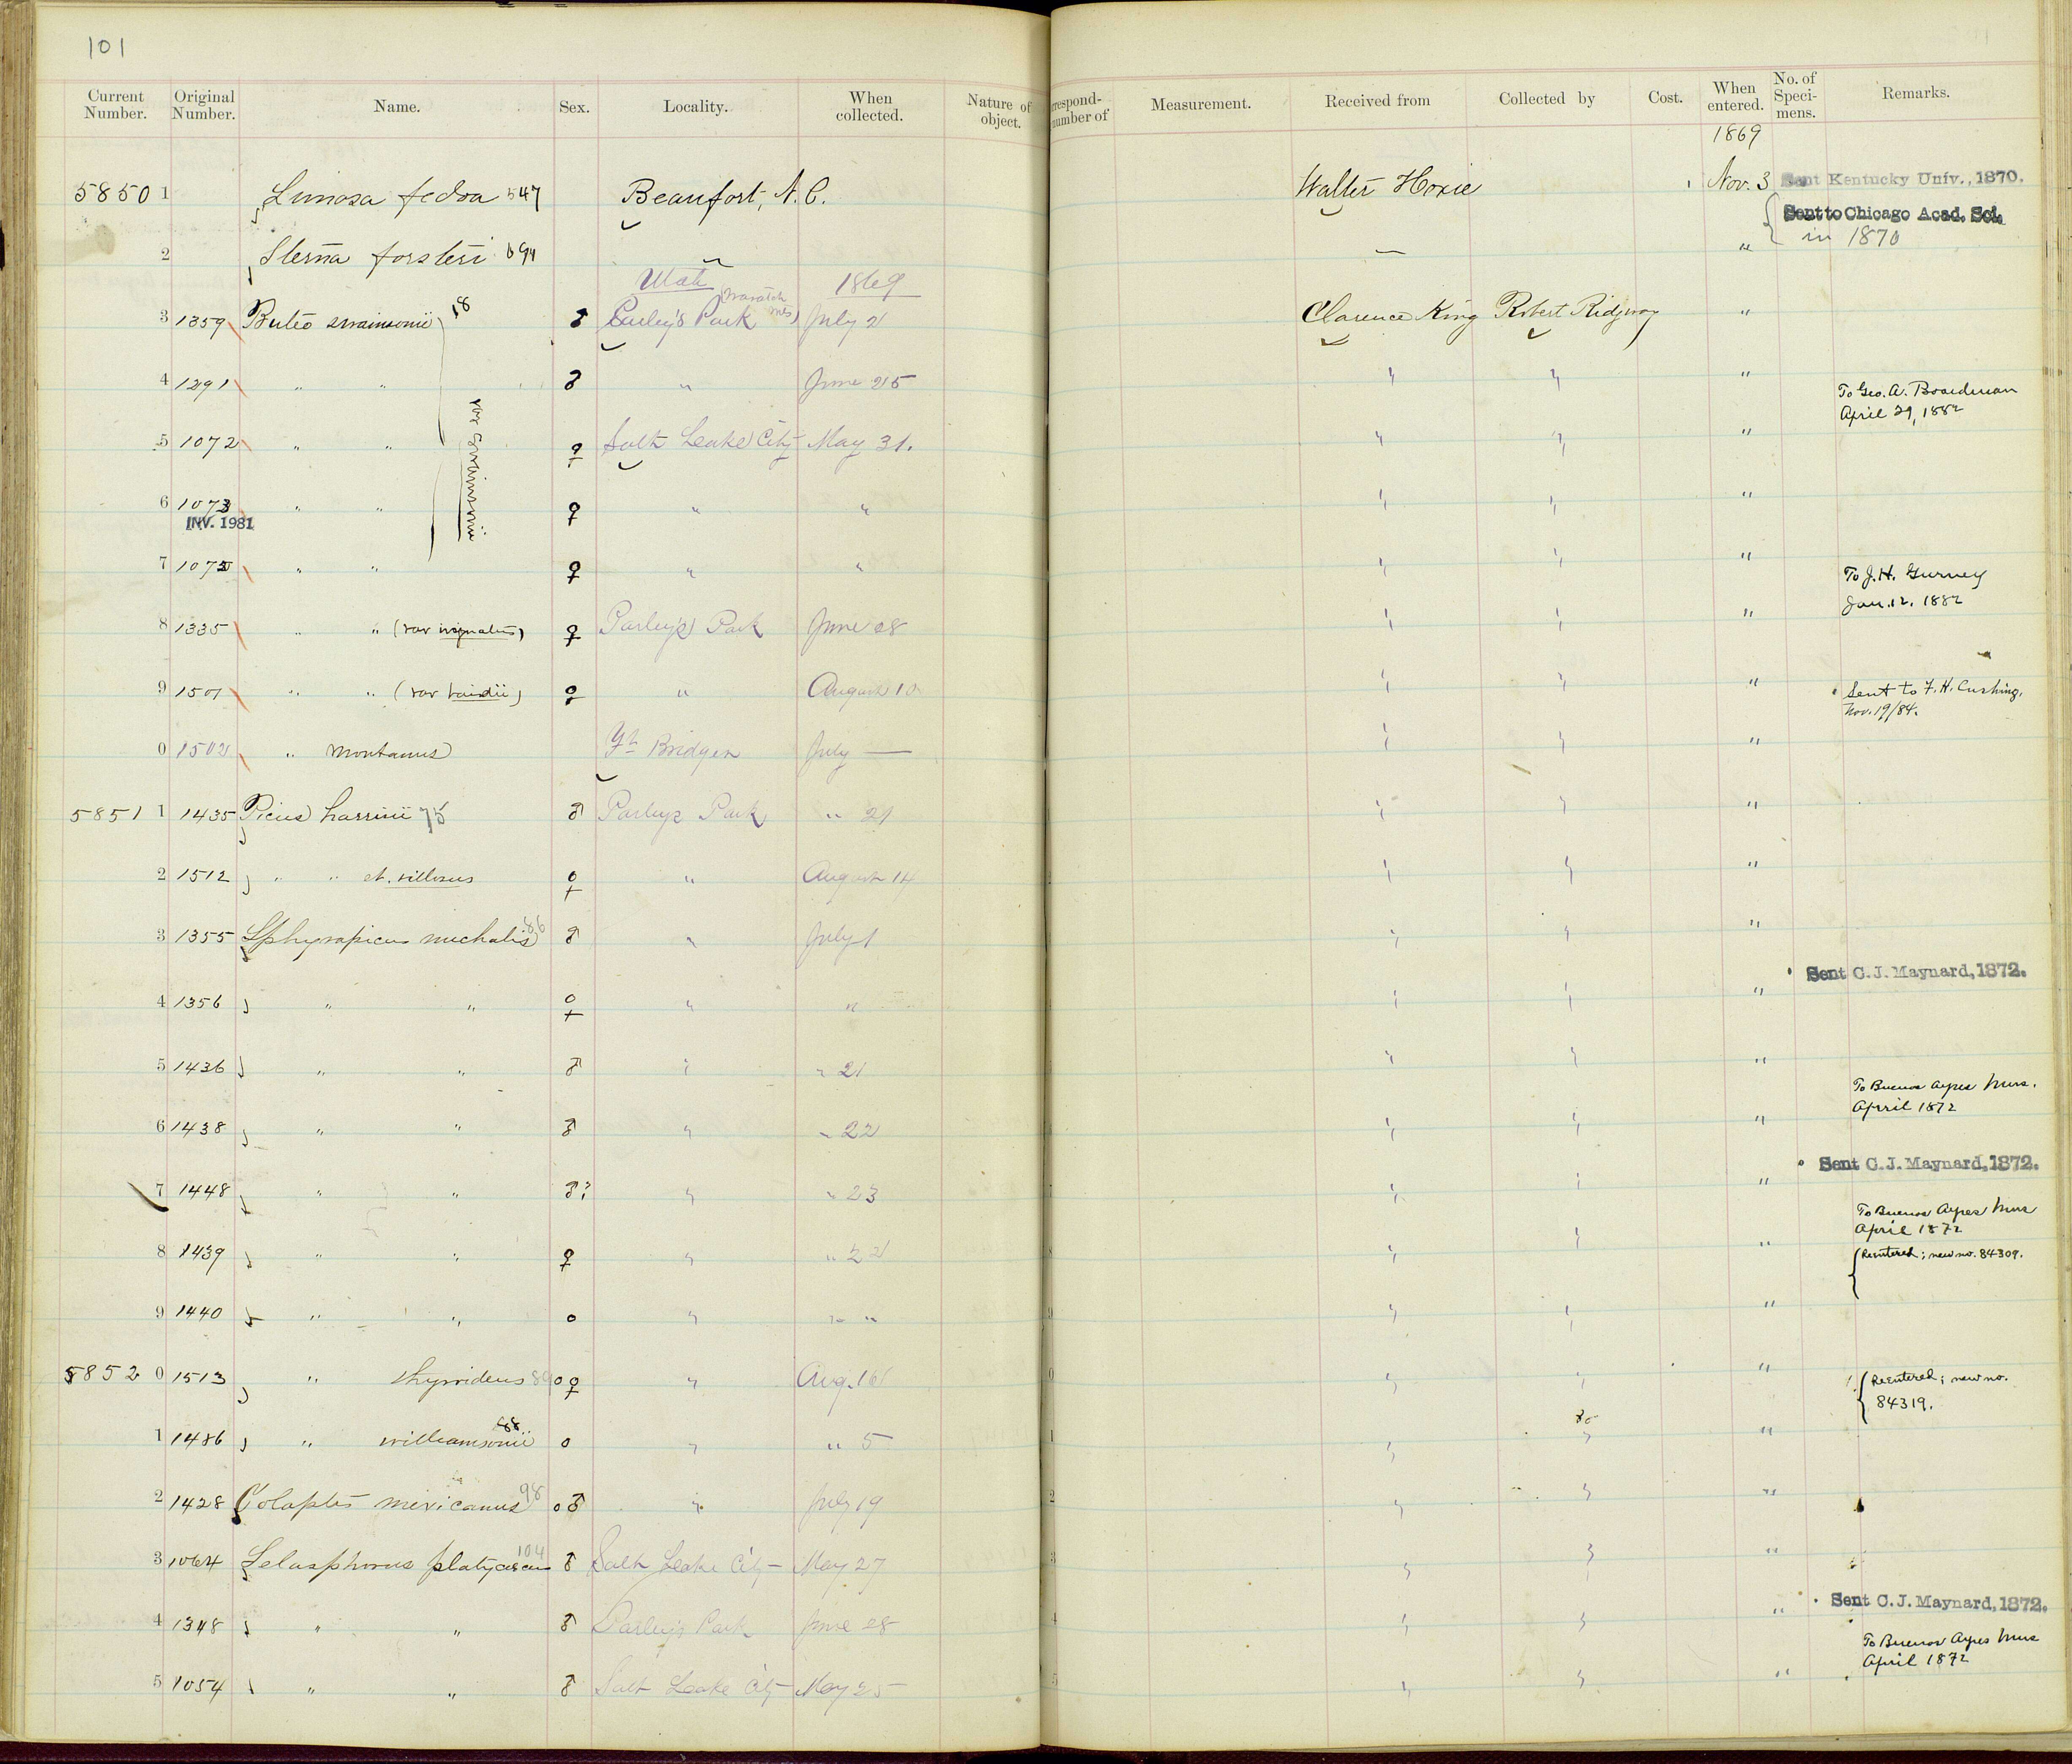 101
Current Number. Original Number. Name. Sex. Locality. When collected. Nature of object. rrespond- number of Measurement. Received from Collected by Cost. When entered. No. of Speci- mens. Remarks.
1869
5850 1 Limosa fedoa 547 Beaufort, N.C. Walter Hoxie Nov. 3 Sent Kentucky Univ., 1870.
Sent to Chicago Acad. Sci.
in 1870
2 Sterna forsteri 691 " — "
Utah 1869
3 1359 Buteo swainsonii 18 ♂ Parley's Park (Wasatch Mts) July 2 Clarence King Robert Ridgway "
4 1291 " " ♂ " June 25 " " "
To Geo. A. Boardman
April 29, 1882
5 1072 " " ♀ Salt Lake City May 31. " " "
var swainsonii
6 1073 " " ♀ " " " " "
INV. 1981
7 1075 " " ♀ " " " " "
To J. H. Gurney
Jan. 12. 1882
8 1335 " " (var insignatus) ♀ Parley's Park June 28 " " "
9 1501 " " (var bairdii) ♀ " August 10 " " "
Sent to F. H. Cushing,
Nov. 19/84.
0 1502 " montanus Ft Bridger July — " " "
5851 1 1435 Picus harrisii 75 ♂ Parleys Park " 21 " " "
2 1512 " " et. villosus ♀ " August 14 " " "
3 1355 Sphyrapicus nuchalis 86 ♂ " July 1 " " "
Sent C. J. Maynard, 1872.
4 1356 " " ♀ " " " " "
5 1436 " " ♂ " " 21 " " "
To Buenos Ayres Mus.
April 1872
6 1438 " " ♂ " " 22 " " "
Sent C. J. Maynard, 1872.
7 1448 " " ♂? " " 23 " " "
To Buenos Ayres Mus
April 1872
8 1439 " " ♀ " " 22 " " "
Reentered; new no. 84309.
9 1440 " " o " " " " " "
5852 0 1513 " thyroideus 89 o ♀ " Aug. 16 " " "
Reentered; new no.
84319.
1 1486 " williamsonii 88 o " " 5 " " "
2 1428 Colaptes mexicanus 98 o ♂ " July 19 " " "
3 1064 Selasphorus platycercus 104 ♂ Salt Lake City May 27 " " "
Sent C. J. Maynard, 1872.
4 1348 " " ♂ Parley's Park June 28 " " "
To Buenos Ayres Mus
April 1872
5 1054 " " ♂ Salt Lake City May 25 " " "